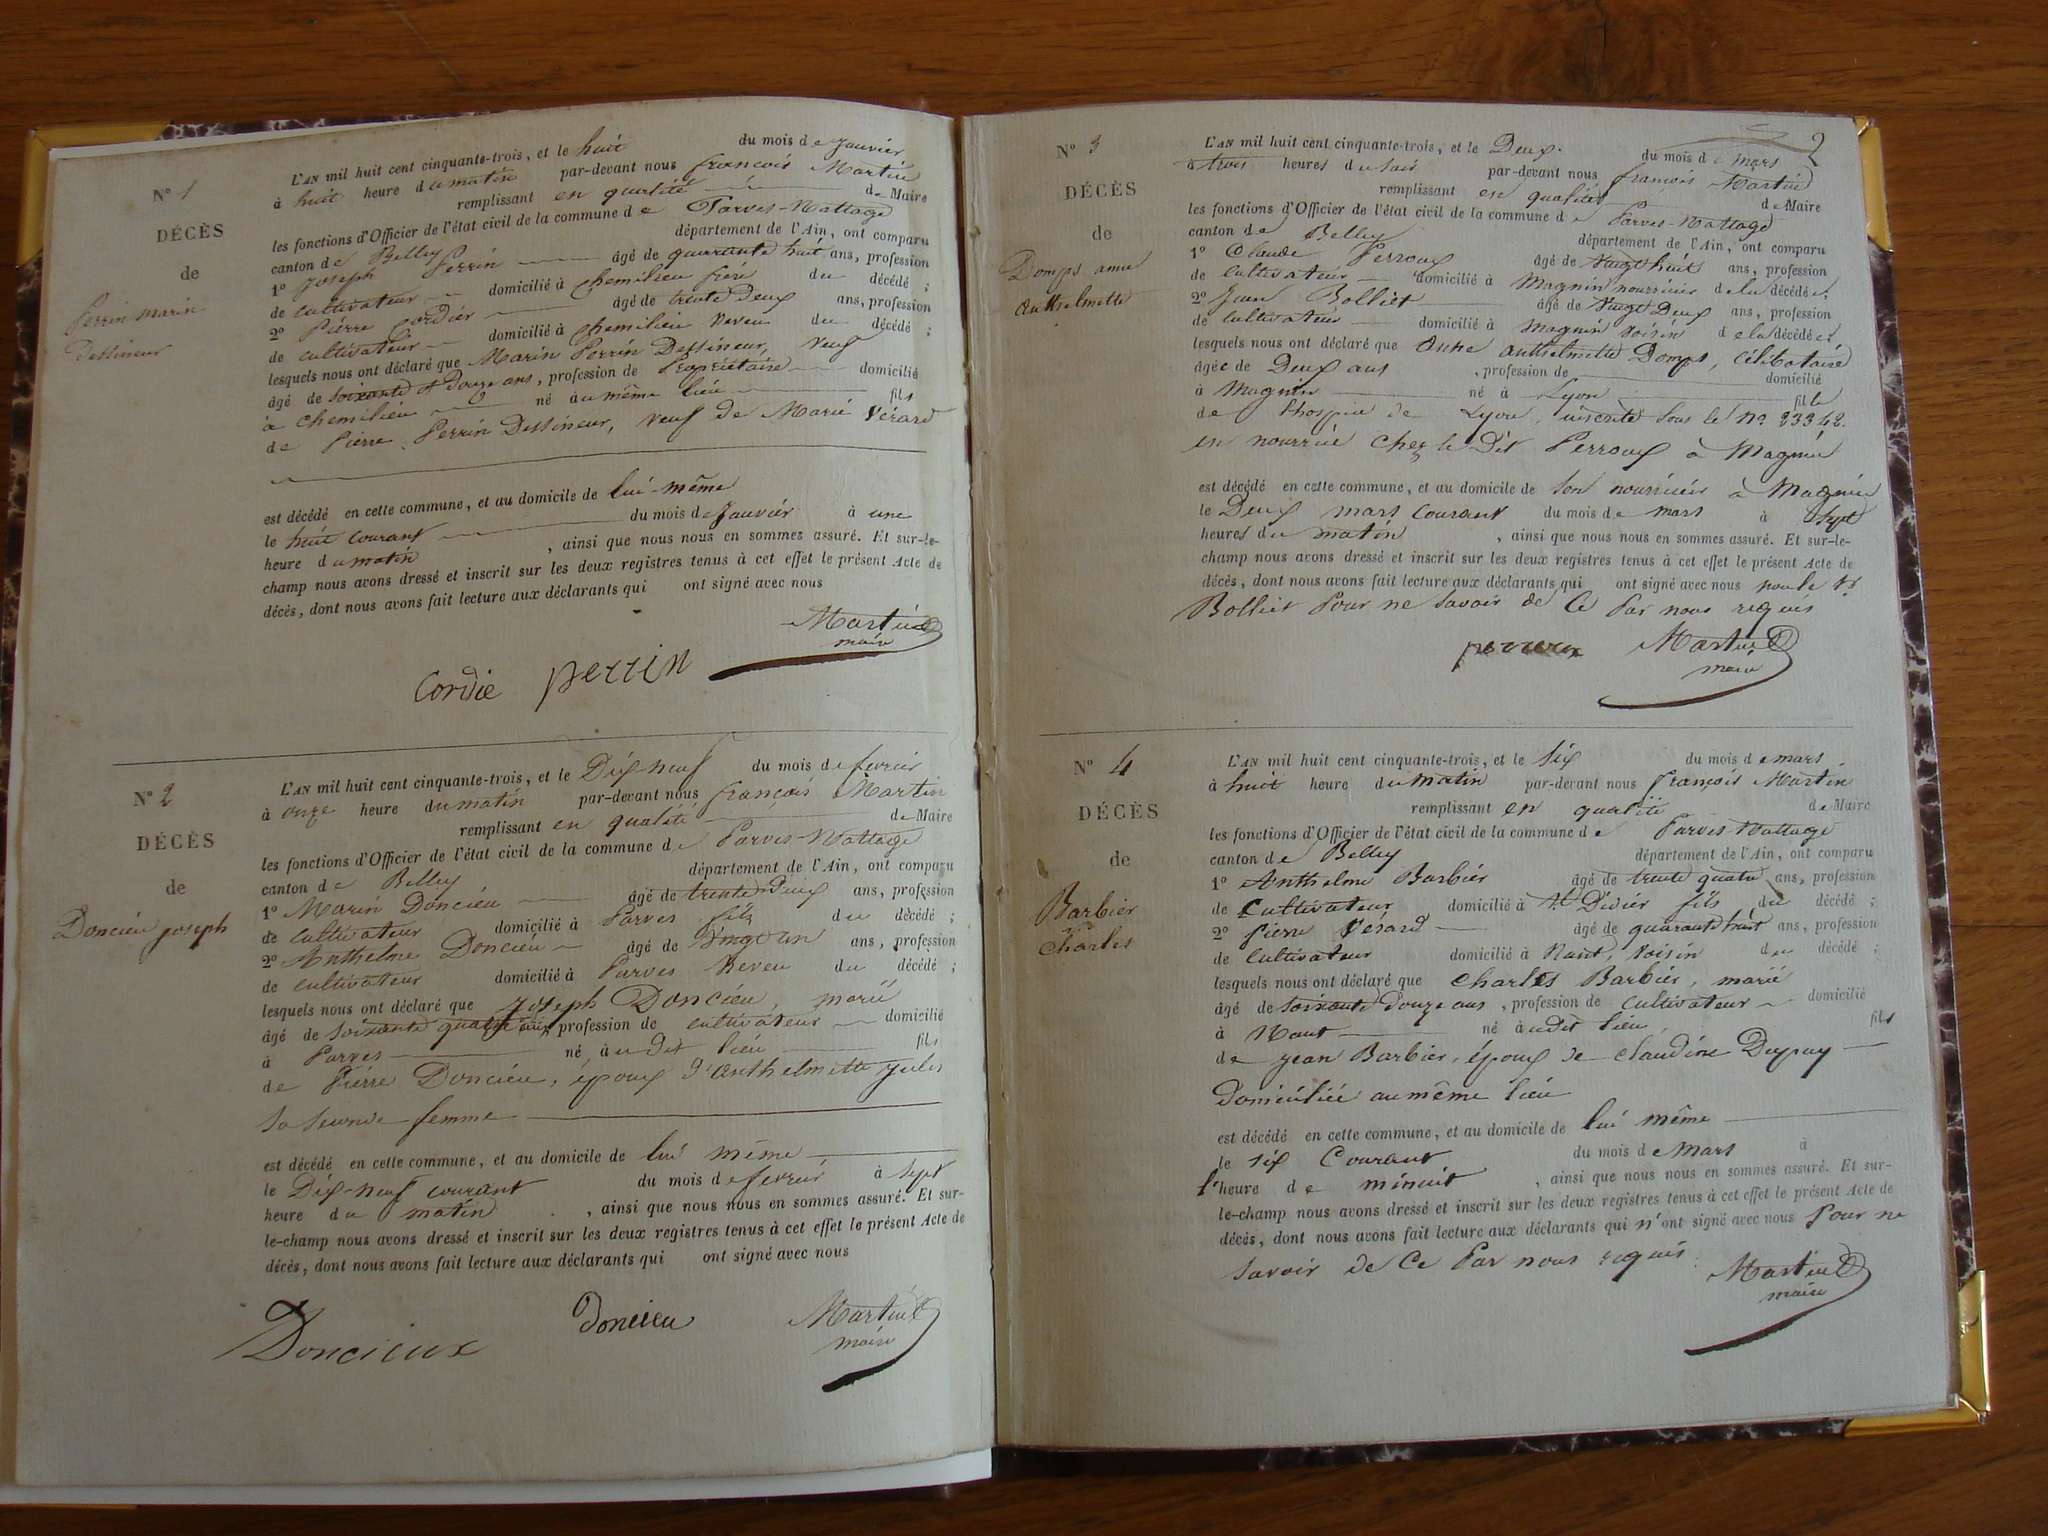 N° 1
DÉCÈS
de
Perrin marin
Dessineur
L'AN mil huit cent cinquante-trois, et le huit du mois de Janvier
à huit heure du matin par-devant nous françois Martin
remplissant en qualité de Maire
les fonctions d'Officier de l'état civil de la commune de Parves-Nattage
canton de Belley département de l'Ain, ont comparu
1° Joseph Perrin âgé de quarante huit ans, profession
de cultivateur domicilié à Chemilieu frère du décédé ;
2° Pierre Cordier âgé de trente Deux ans, profession
de cultivateur domicilié à Chemilieu Neveu du décédé ;
lesquels nous ont déclaré que Marin Perrin Dessineur, veuf
âgé de soixante et Douze ans, profession de Propriétaire domicilié
à Chemilieu né au même lieu fils
de Pierre Perrin Dessineur, veuf de Marie Vérard
est décédé en cette commune, et au domicile de lui-même
le huit courant du mois de Janvier à une
heure du matin, ainsi que nous nous en sommes assuré. Et sur-le-
champ nous avons dressé et inscrit sur les deux registres tenus à cet effet le présent Acte de
décès, dont nous avons fait lecture aux déclarants qui ont signé avec nous
Martin
maire
Cordie perrin
N° 2
DÉCÈS
de
Doncieu joseph
L'AN mil huit cent cinquante-trois, et le Dix neuf du mois de fevrier
à onze heure du matin par-devant nous françois Martin
remplissant en qualité de Maire
les fonctions d'Officier de l'état civil de la commune de Parves-Nattage
canton de Belley département de l'Ain, ont comparu
1° Marin Doncieu âgé de trente Deux ans, profession
de cultivateur domicilié à Parves fils du décédé ;
2° Anthelme Doncieu âgé de vingt un ans, profession
de cultivateur domicilié à Parves Neveu du décédé ;
lesquels nous ont déclaré que joseph Doncieu, marié
âgé de soixante quatre ans, profession de cultivateur domicilié
à Parves né au Dit lieu fils
de Pierre Doncieu, époux d'anthelmette Jules
sa seconde femme
est décédé en cette commune, et au domicile de lui même
le Dix-neuf courant du mois de fevrier à sept
heure du matin, ainsi que nous nous en sommes assuré. Et sur-
le-champ nous avons dressé et inscrit sur les deux registres tenus à cet effet le présent Acte de
décès, dont nous avons fait lecture aux déclarants qui ont signé avec nous
Doncieux Doncieu Martin
maire
2
N° 3
DÉCÈS
de
Domps anne
anthelmette
L'AN mil huit cent cinquante-trois, et le Deux du mois de mars
à trois heures du soir par-devant nous françois Martin
remplissant en qualité de Maire
les fonctions d'Officier de l'état civil de la commune de Parves-Nattage
canton de Belley département de l'Ain, ont comparu
1° Claude Perroux âgé de vingt huit ans, profession
de cultivateur domicilié à Magnin nourricier de la décédée;
2° Jean Bolliet âgé de vingt Deux ans, profession
de cultivateur domicilié à Magnin voisin de la décédée;
lesquels nous ont déclaré que anne anthelmette Domps, célibataire
âgée de Deux ans, profession de domicilié
à Magnin né à Lyon fille
de l'hospice de Lyon, inscrite sous le N° 23342.
en nourrice chez le Dit Perroux à Magnin
est décédé en cette commune, et au domicile de son nourricier à Magnin
le Deux mars courant du mois de mars à sept
heures du matin, ainsi que nous nous en sommes assuré. Et sur-le-
champ nous avons dressé et inscrit sur les deux registres tenus à cet effet le présent Acte de
décès, dont nous avons fait lecture aux déclarants qui ont signé avec nous non le
Bolliet Pour ne savoir de Ce Par nous requis
perroux Martin
maire
N° 4
DÉCÈS
de
Barbier
Charles
L'AN mil huit cent cinquante-trois, et le six du mois de mars
à huit heure du matin par-devant nous françois Martin
remplissant en qualité de Maire
les fonctions d'Officier de l'état civil de la commune de Parves-Nattage
canton de Belley département de l'Ain, ont comparu
1° Anthelme Barbier âgé de trente quatre ans, profession
de Cultivateur domicilié à St. Didier fils du décédé ;
2° Pierre Vérard âgé de quarante huit ans, profession
de Cultivateur domicilié à Nant, voisin du décédé ;
lesquels nous ont déclaré que Charles Barbier, marié
âgé de soixante Douze ans, profession de cultivateur domicilié
à Nant né au dit lieu fils
de jean Barbier, époux de claudine Dupuy
Domiciliée au même lieu
est décédé en cette commune, et au domicile de lui même
le six Courant du mois de Mars à
l'heure de minuit, ainsi que nous nous en sommes assuré. Et sur-
le-champ nous avons dressé et inscrit sur les deux registres tenus à cet effet le présent Acte de
décès, dont nous avons fait lecture aux déclarants qui n'ont signé avec nous Pour ne
savoir de Ce Par nous requis.
Martin
maire